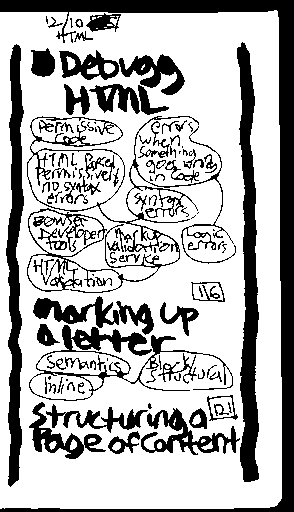 12/10
HTML
Debugg
HTML
Permissive
code
Errors
when
something
goes wrong
in code
HTML Parsed
Permissively
no syntax
errors
syntax
errors
Browser
Developer
tools
Markup
Validation
Service
Logic
errors
HTML
Validation
116
Marking up
a letter
Semantics
Block/
Structural
Inline
Structuring a
Page of Content